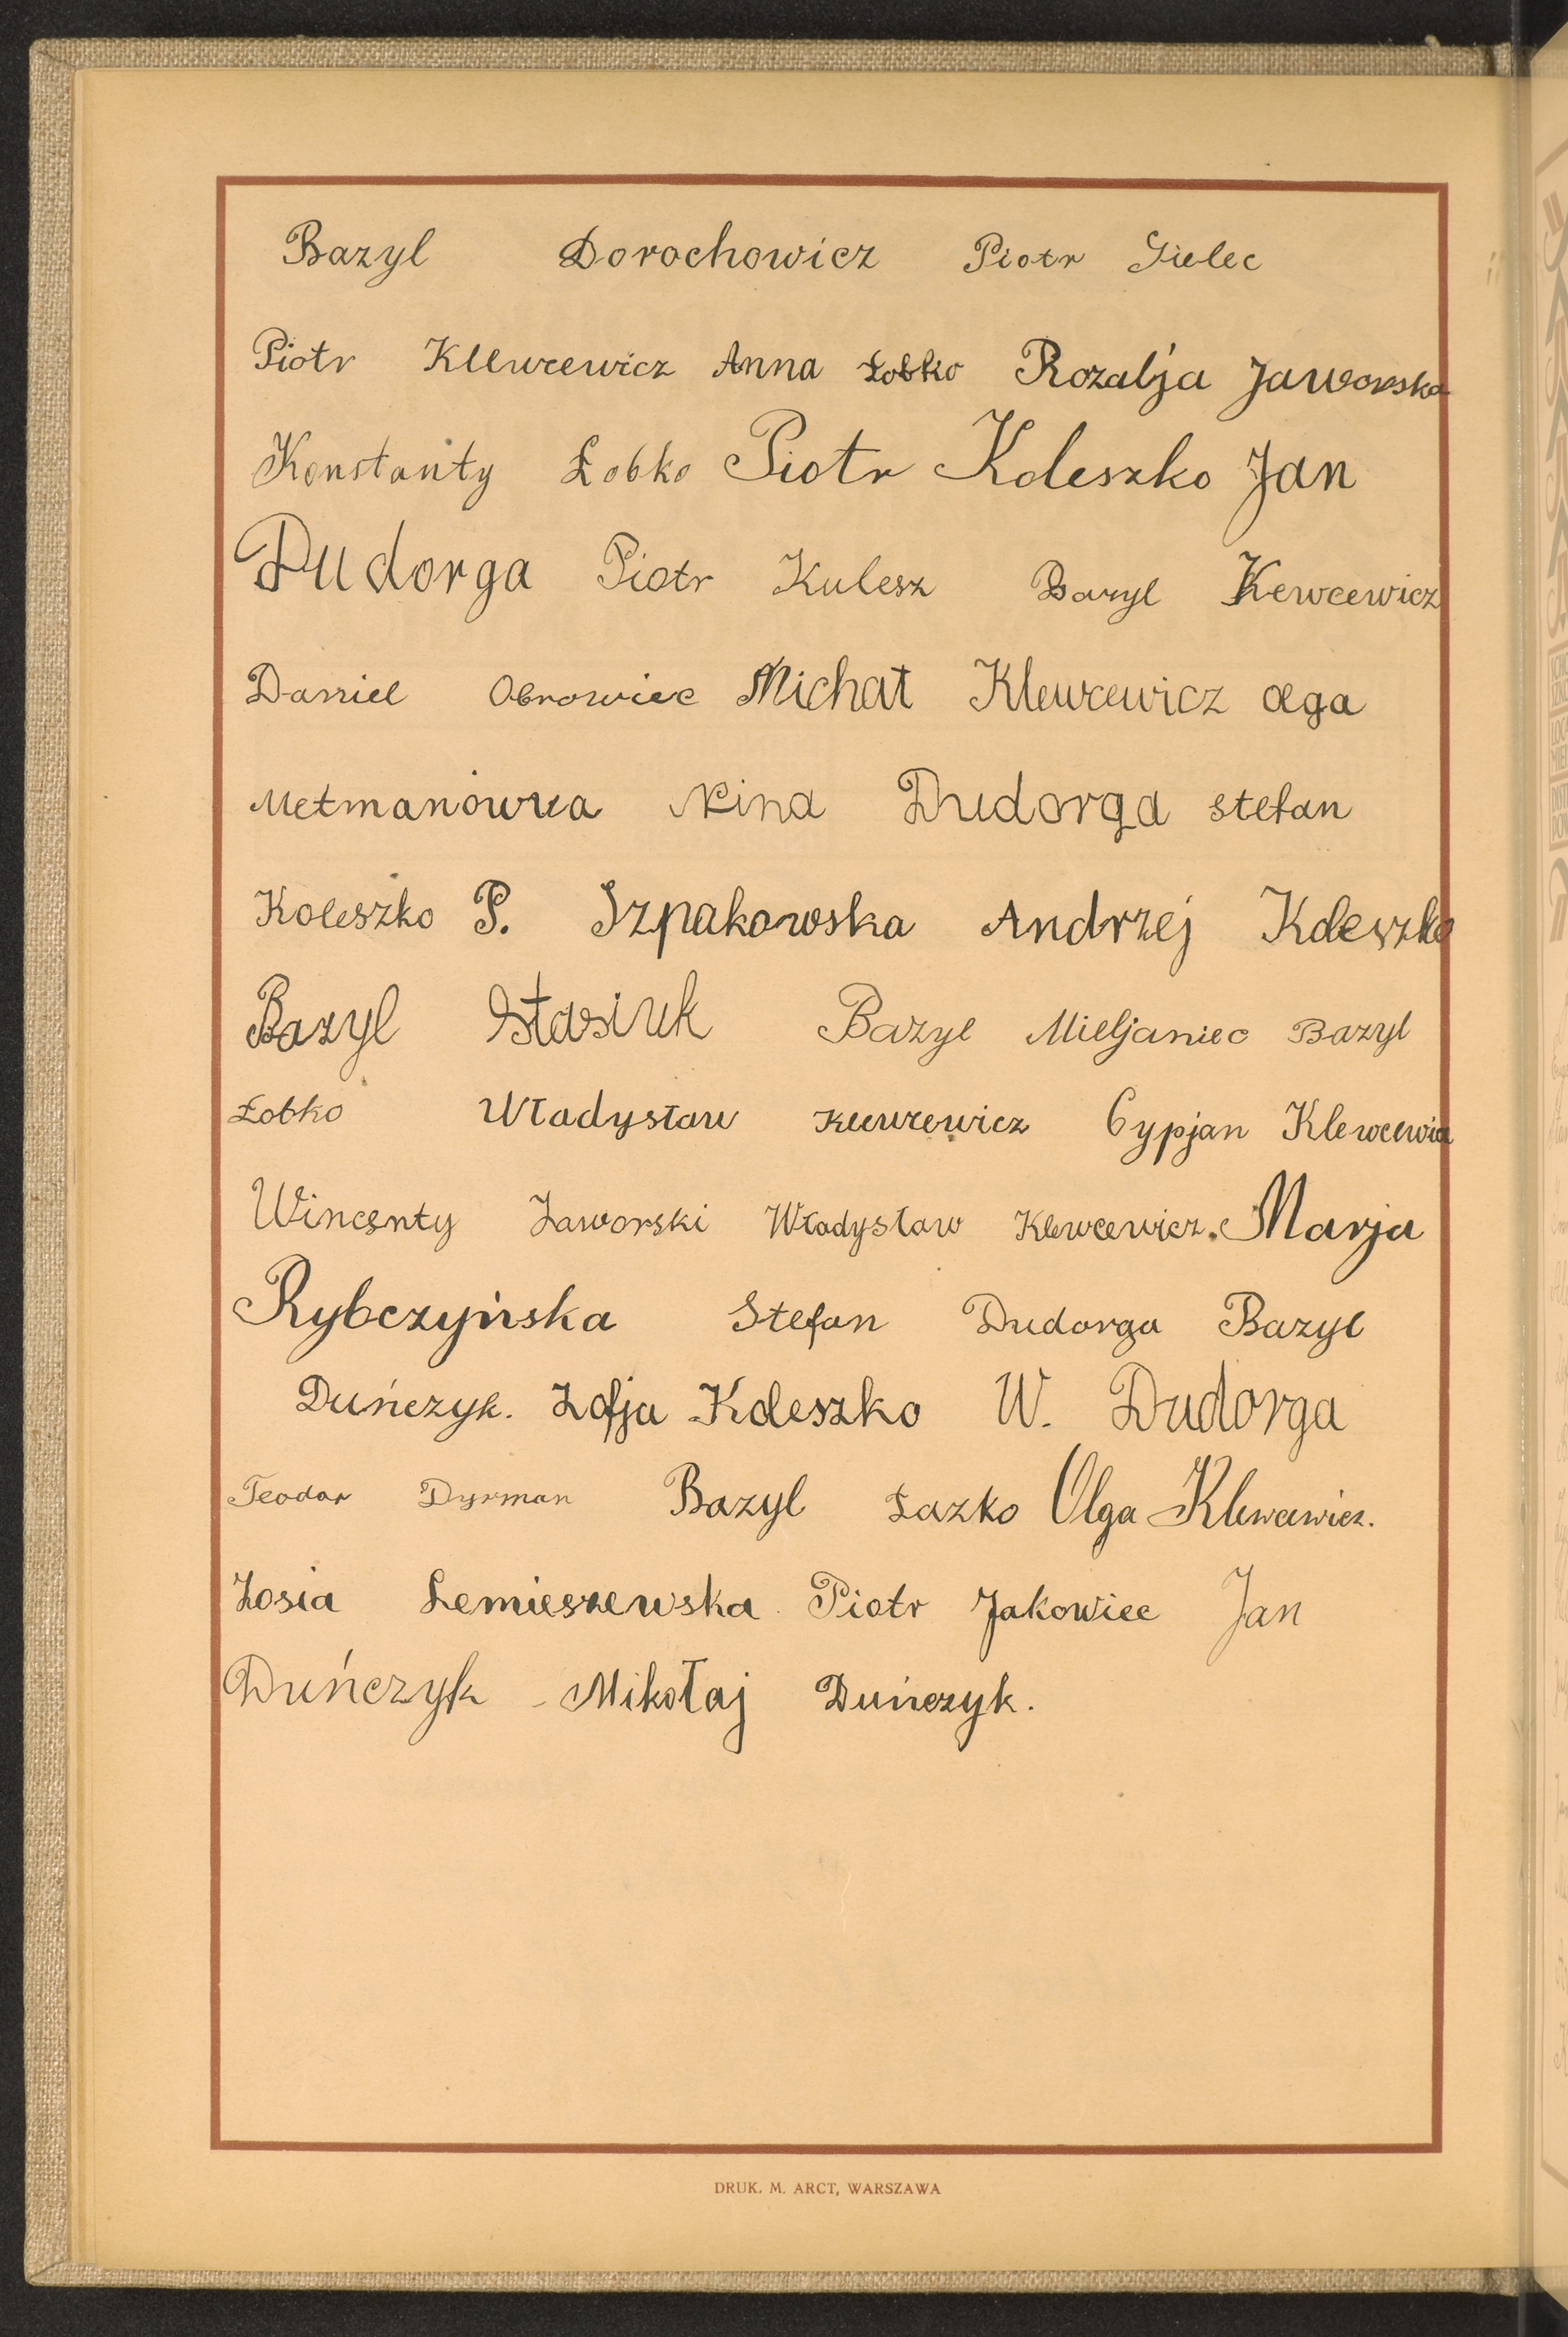 Bazyl Dorochowicz Piotr Gielec
Piotr Klewcewicz Anna Łobko Rozalja Jaworska
Konstanty Łobko Piotr Koleszko Jan
Dudorga Piotr Kulesz Bazyl Kewcewicz
Daniel Obrowiec Michał Klewcewicz Olga
Metmanówna Nina Dudorga Stefan
Koleszko P. Szpakowska Andrzej Koleszko
Bazyl Stasiuk Bazyl Mieljaniec Bazyl
Łobko Władysław Klewcewicz Cypjan Klewcewicz
Wincenty Jaworski Władysław Klewcewicz. Marja
Rybczyńska Stefan Dudorga Bazyl
Duńczyk. Zofja Koleszko W. Dudorga
Teodor Dyrman Bazyl Łazko Olga Klewcewicz.
Zosia Lemieszewska Piotr Jakowiec Jan
Duńczyk Mikołaj Duńczyk.
DRUK. M. ARCT, WARSZAWA